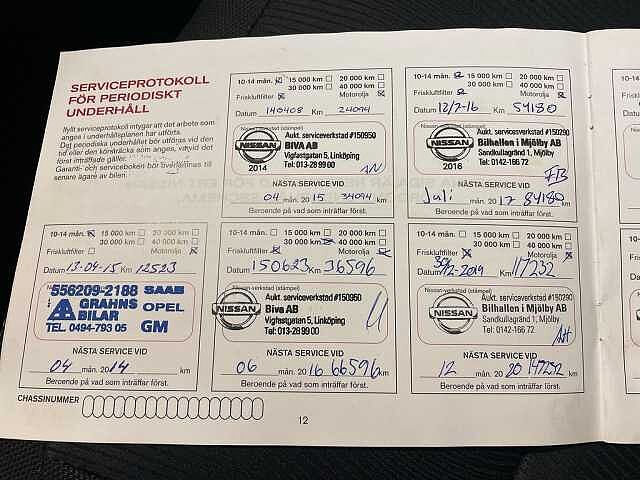 SERVICEPROTOKOLL
FÖR PERIODISKT
UNDERHÅLL
Ifyllt serviceprotokoll intygar att det arbete som
anges i underhållsplanen har utförts.
Det periodiska underhållet bör utföras vid den
tid eller den körsträcka som anges, vid
först inträffade gäller.
Garanti- och serviceboken bör överlämnas till
senare ägare av bilen.
10-14 mån. 15 000 km 20 000 km
30 000 km 40 000 km
Friskluftfilter Motorolja
Datum 140408 Km 24094
Nissan-verkstad (stämpel)
NISSAN
2014
Aukt. serviceverkstad #150950
BIVA AB
Vigfastgatan 5, Linköping
Tel: 013-28 99 00
AN
NÄSTA SERVICE VID
04 mån. 2015 34094 km
Beroende på vad som inträffar först.
10-14 mån. 15 000 km 20 000 km
30 000 km 40 000 km
Friskluftfilter Motorolja
Datum 12/7-16 Km 54180
Nissan-verkstad (stämpel)
NISSAN
2016
Aukt. serviceverkstad #150290
Bilhallen i Mjölby AB
Sandkullagränd 1, Mjölby
Tel: 0142-166 72
FB
NÄSTA SERVICE VID
Juli mån. 2017 84180 km
Beroende på vad som inträffar först.
10-14 mån. 15 000 km 20 000 km
30 000 km 40 000 km
Friskluftfilter Motorolja
Datum 13-04-15 Km 12523
556209-2188 SAAB
GRAHNS OPEL
BILAR
TEL. 0494-793 05 GM
NÄSTA SERVICE VID
04 mån. 2014 km
Beroende på vad som inträffar först.
10-14 mån. 15 000 km 20 000 km
30 000 km 40 000 km
Friskluftfilter Motorolja
Datum 150623 Km 36596
Nissan-verkstad (stämpel)
NISSAN
Aukt. serviceverkstad #150950
Biva AB
Vigfastgatan 5, Linköping
Tel: 013-28 99 00
NÄSTA SERVICE VID
06 mån. 2016 66596 km
Beroende på vad som inträffar först.
10-14 mån. 15 000 km 20 000 km
30 000 km 40 000 km
Friskluftfilter Motorolja
Datum 30/12-2019 Km 117232
Nissan-verkstad (stämpel)
NISSAN
Aukt. serviceverkstad #150290
Bilhallen i Mjölby AB
Sandkullagränd 1, Mjölby
Tel: 0142-166 72
NÄSTA SERVICE VID
12 mån. 2020 147232 km
Beroende på vad som inträffar först.
CHASSINUMMER
12